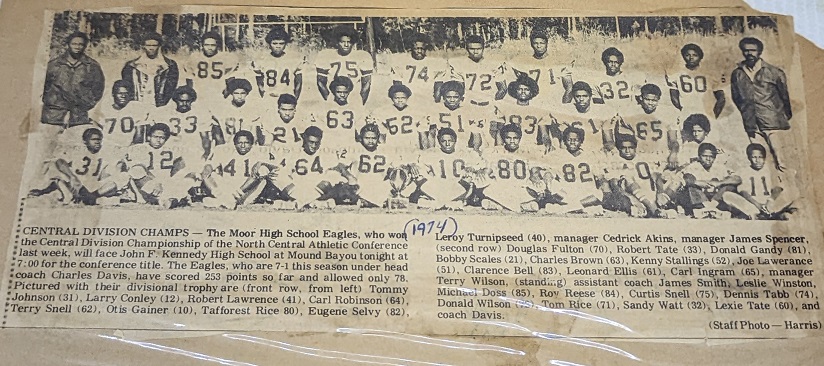 85
84
75
74
72
71
32
60
70
33
81
21
63
62
51
83
61
65
31
12
41
64
62
10
80
82
11
(1974)
CENTRAL DIVISION CHAMPS — The Moor High School Eagles, who won
the Central Division Championship of the North Central Athletic Conference
last week, will face John F. Kennedy High School at Mound Bayou tonight at
7:00 for the conference title. The Eagles, who are 7-1 this season under head
coach Charles Davis, have scored 253 points so far and allowed only 78.
Pictured with their divisional trophy are (front row, from left) Tommy
Johnson (31), Larry Conley (12), Robert Lawrence (41), Carl Robinson (64),
Terry Snell (62), Otis Gainer (10), Tafforest Rice 80), Eugene Selvy (82),
Leroy Turnipseed (40), manager Cedrick Akins, manager James Spencer,
(second row) Douglas Fulton (70), Robert Tate (33), Donald Gandy (81),
Bobby Scales (21), Charles Brown (63), Kenny Stallings (52), Joe Lawerance
(51), Clarence Bell (83), Leonard Ellis (61), Carl Ingram (65), manager
Terry Wilson, assistant coach James Smith, Leslie Winston,
Michael Doss (85), Roy Reese (84), Curtis Snell (75), Dennis Tabb (74),
Donald Wilson Tom Rice (71), Sandy Watt (32), Lexie Tate (60), and
coach Davis.
(Staff Photo — Harris)